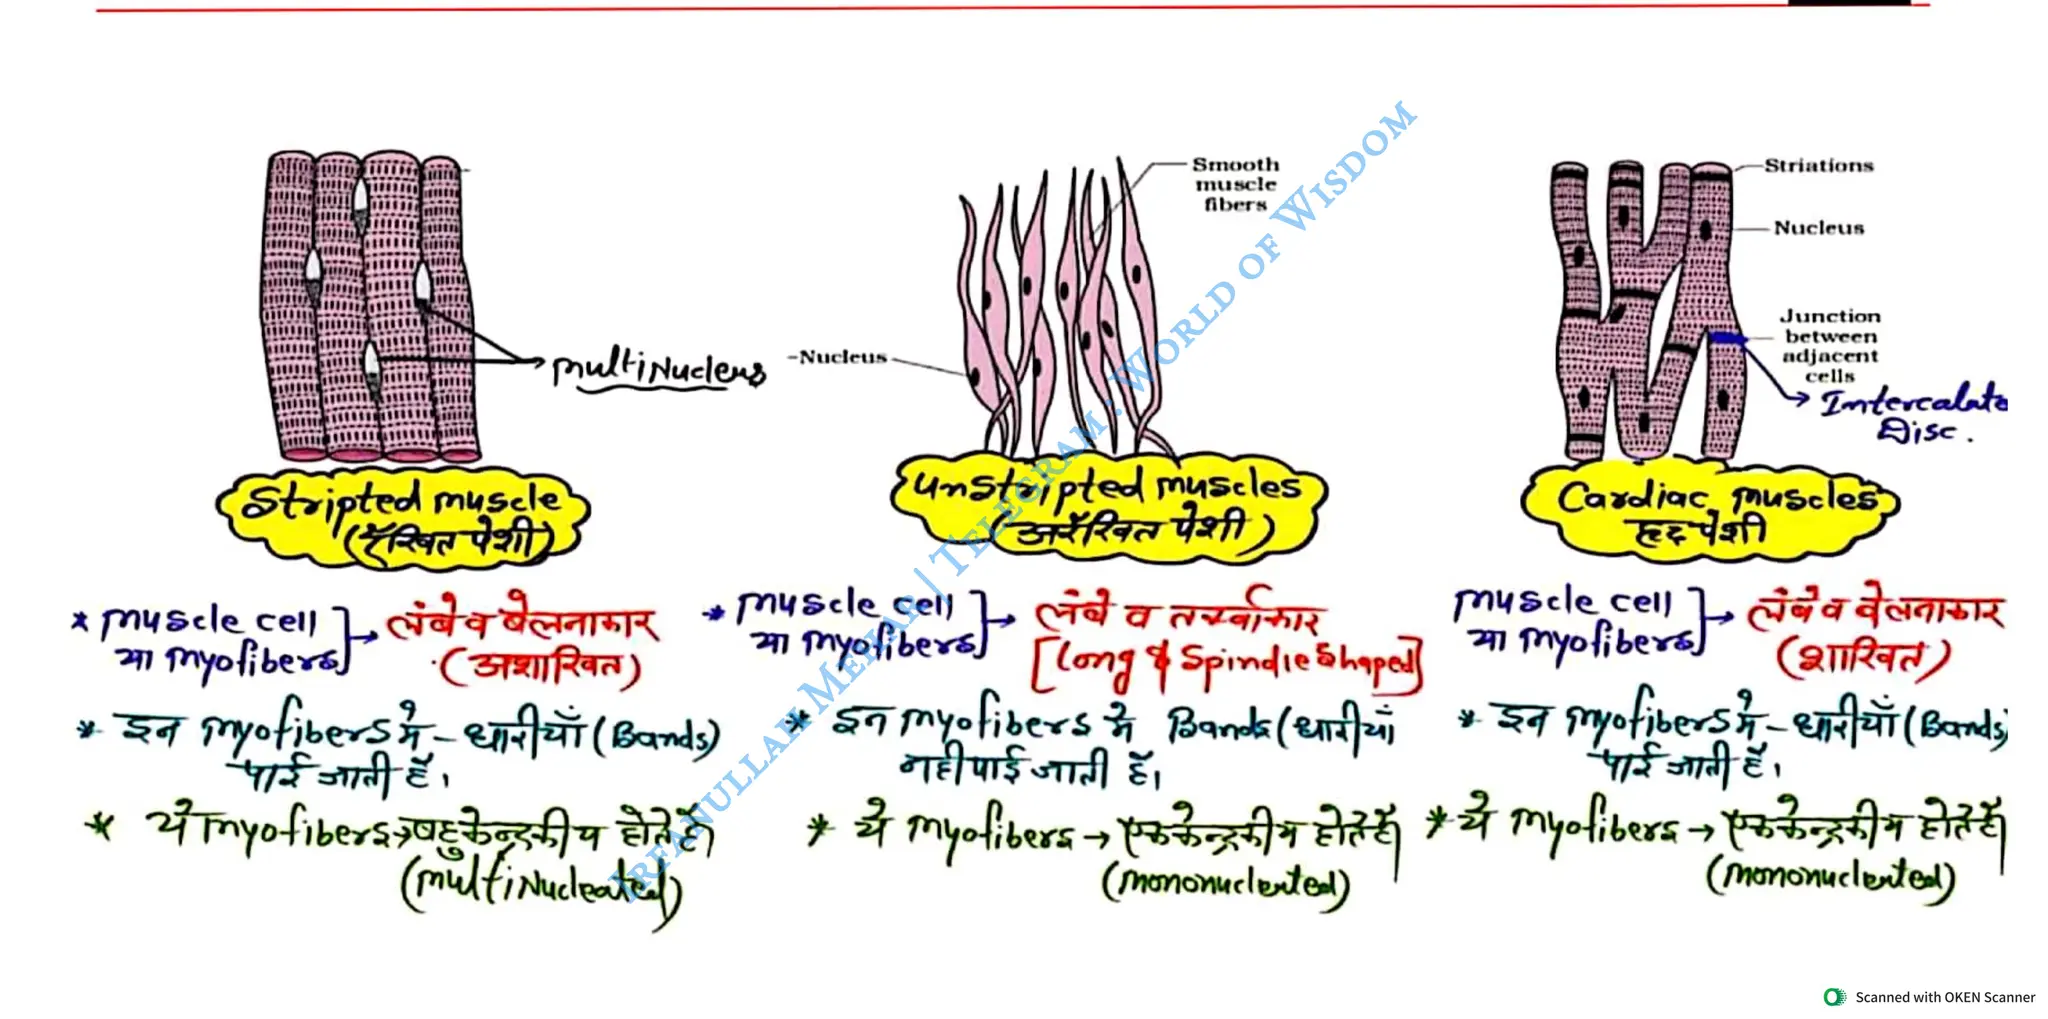 Smooth
muscle
fibers
Striations
Nucleus
Junction
between
adjacent
cells
Intercalate
Disc.
multiNucleus
-Nucleus
Stripted muscle
(रेखित पेशी)
unstripted muscles
(अरेखित पेशी)
Cardiac muscles
हृद पेशी
* muscle cell
या myofibers
→ लंबे व बेलनाकार
(अशाखित)
* इन myofibers मे - धारीयाँ (Bands)
पाई जाती हैं।
* ये myofibers → बहुकेन्द्रकीय होते हैं।
(multiNucleated)
* muscle cell
या myofibers
→ लंबे व तर्क्वाकार
[Long & Spindle Shaped]
* इन myofibers मे Bands (धारीयाँ
नही पाई जाती हैं।
* ये myofibers → एककेन्द्रकीय होते हैं।
(mononuclented)
muscle cell
या myofibers
→ लंबे व बेलनाकार
(शाखित)
* इन myofibers मे - धारीयाँ (Bands)
पाई जाती हैं।
* ये myofibers → एककेन्द्रकीय होते हैं।
(mononuclented)
Irfanullah Mehar | Telegram : World of Wisdom
Scanned with OKEN Scanner